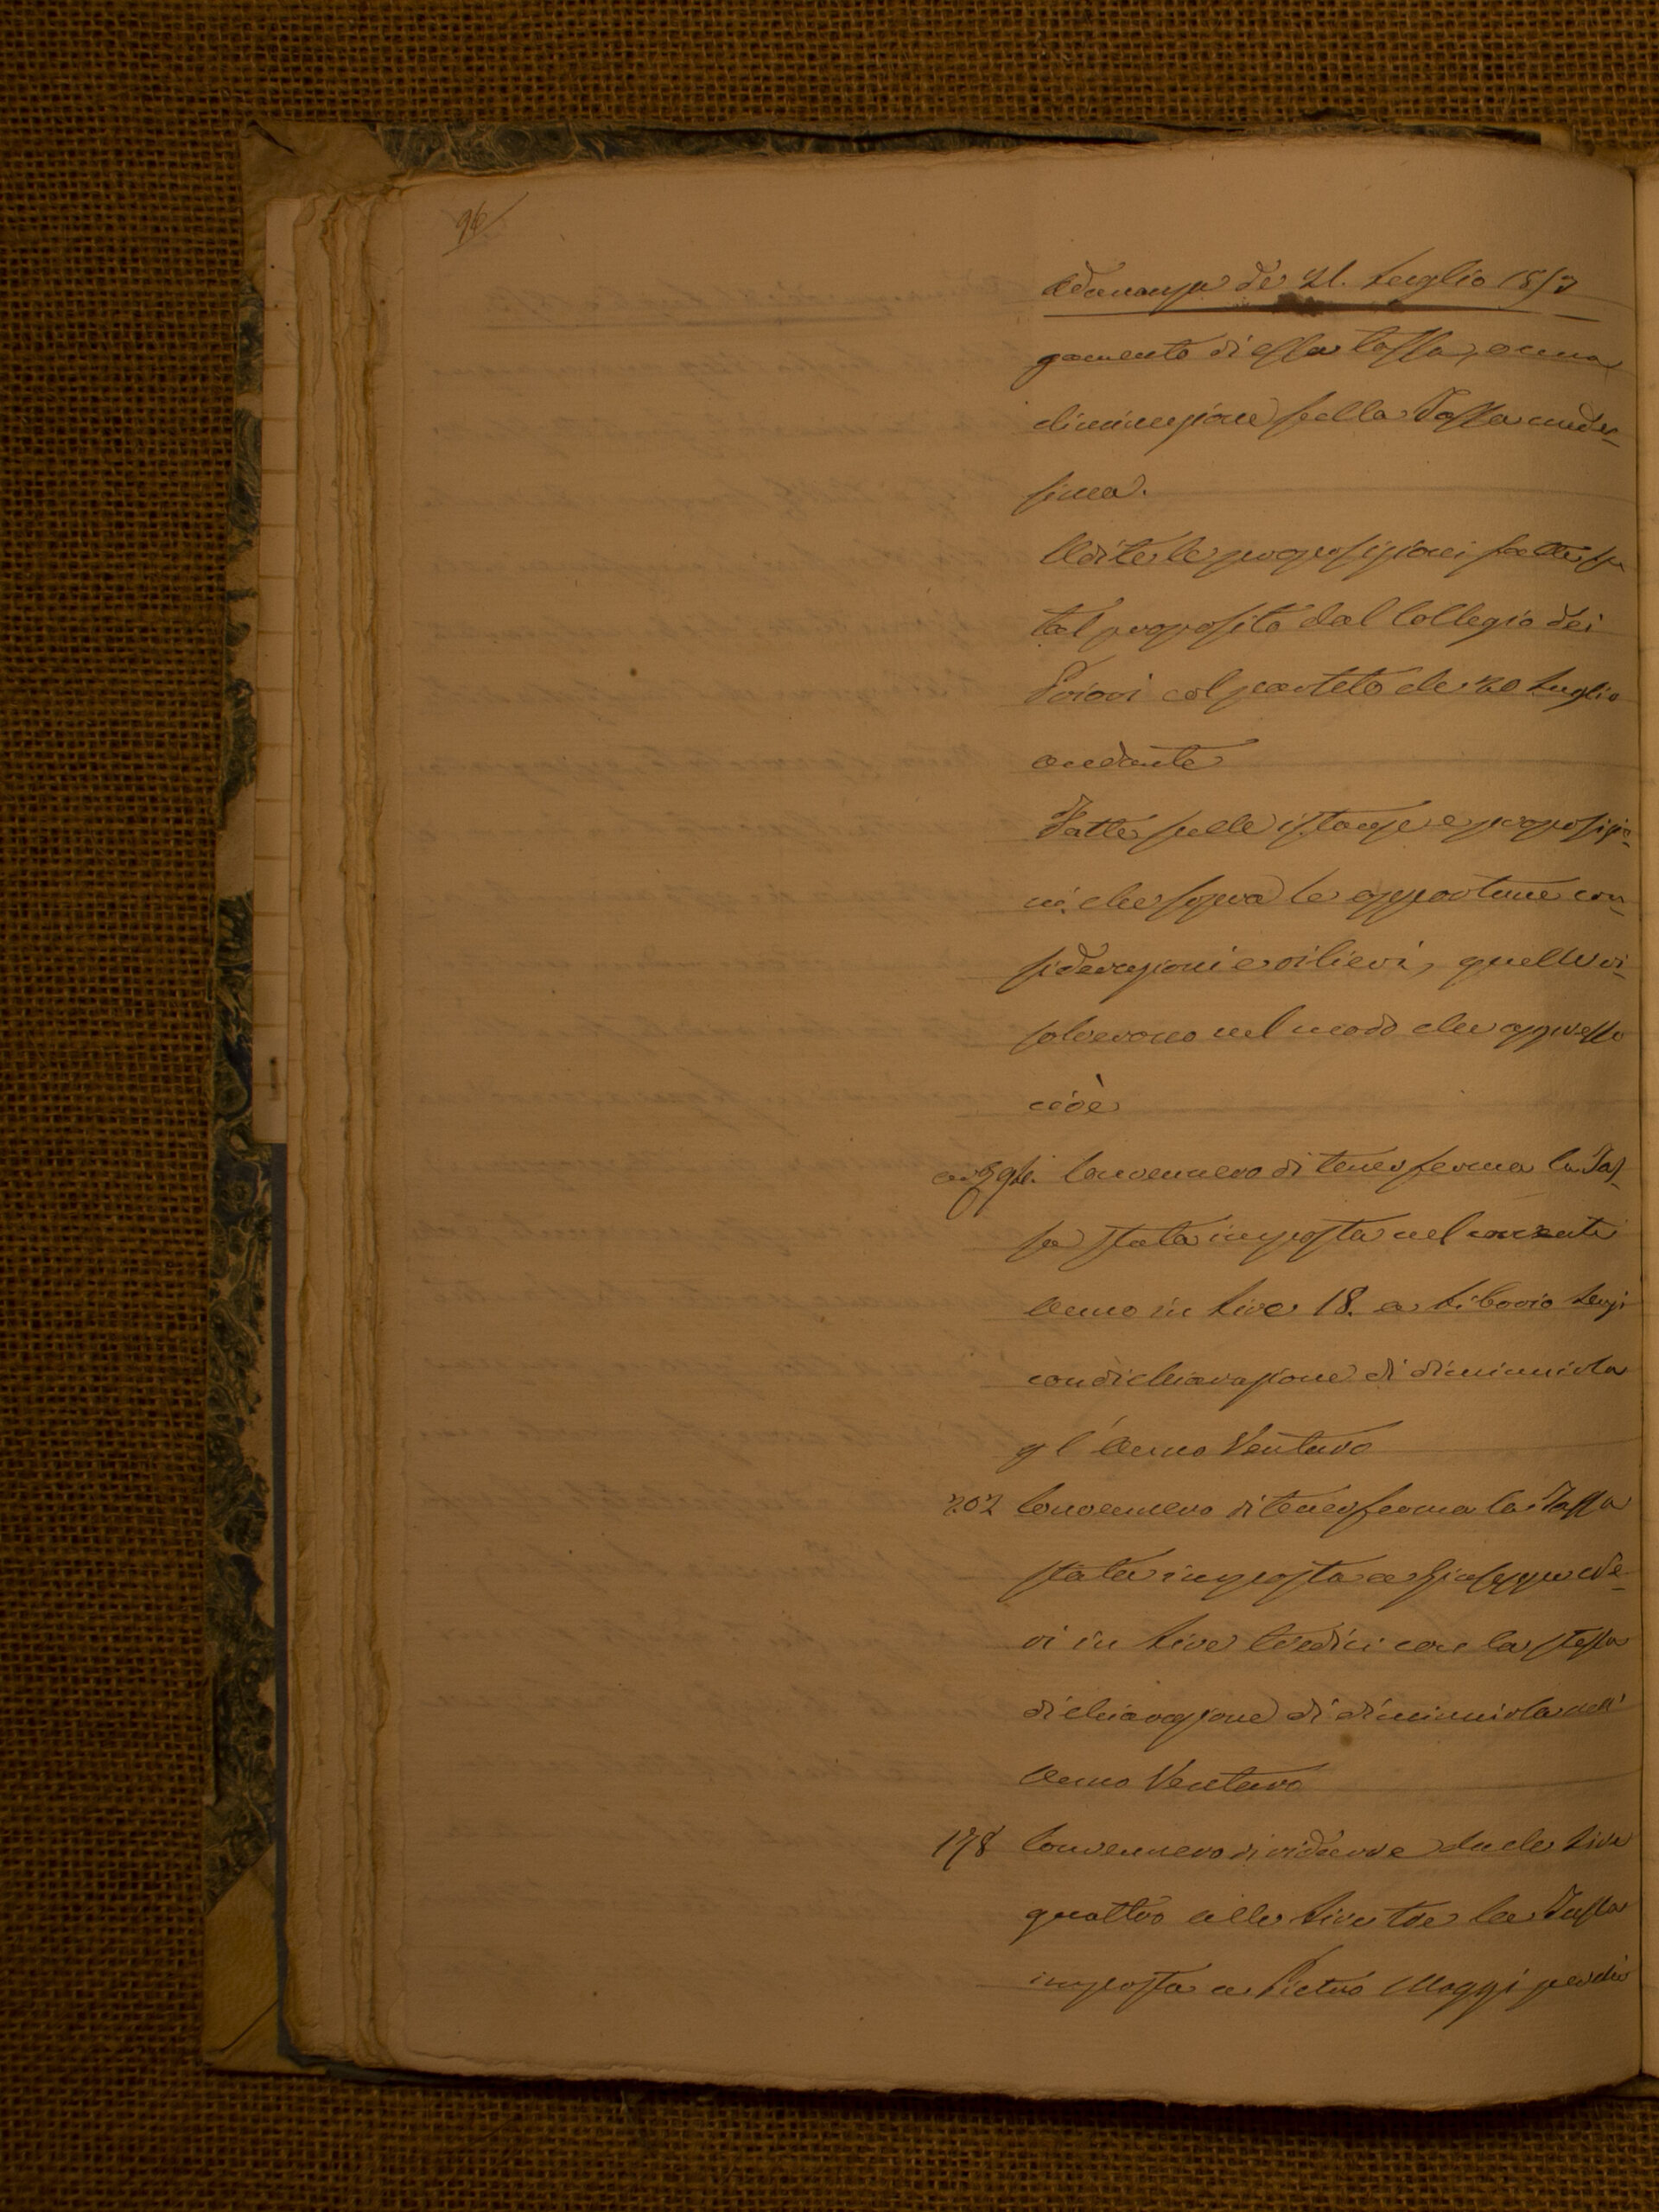 96
Adunanza de 21. Luglio 1857
gamento di essa tassa, o una
diminuzione sulla Tassa mede-
sima.
Udite le proposizioni fatte su
tal proposito dal Collegio dei
Priori col partito de 20 Luglio
andante
Fatte sulle istanze e proposizio-
ni che sopra le opportune con-
siderazioni e rilievi, quelle ri-
solverono nel modo che appresso
cioè
Convennero di tener ferma la Tas-
sa stata imposta nel corrente
Anno in Lire 18. a Liborio
con dichiarazione di diminuirla
p l'Anno Venturo
202 Convennero di tener ferma la Tassa
stata imposta a Giuseppe Ne-
ri in Lire tredici con la stessa
dichiarazione di diminuirla nell'
Anno Venturo
178 Convennero di ridurre dalle Lire
quattro alle Lire tre la Tassa
imposta a Pietro Maggi per